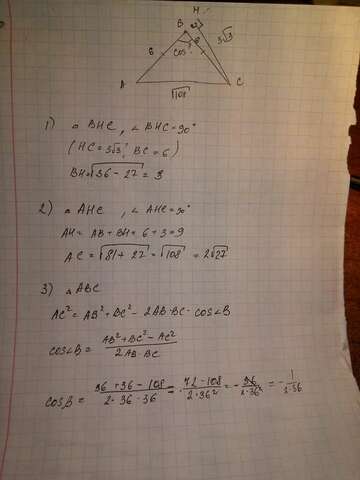 H
B
3
6
6
cos
3√3
A
C
√108
1) △ BHC, ∠ BHC = 90°
(HC = 3√3, BC = 6)
BH = √36 - 27 = 3
2) △ AHC, ∠ AHC = 90°
AH = AB + BH = 6 + 3 = 9
AC = √81 + 27 = √108 = 2√27
3) △ ABC
AC² = AB² + BC² - 2AB·BC·cos∠B
cos∠B = (AB² + BC² - AC²)/(2AB·BC)
cosB = (36 + 36 - 108)/(2·36·36) = (72 - 108)/(2·36²) = -36/(2·36²) = -1/(2·36)